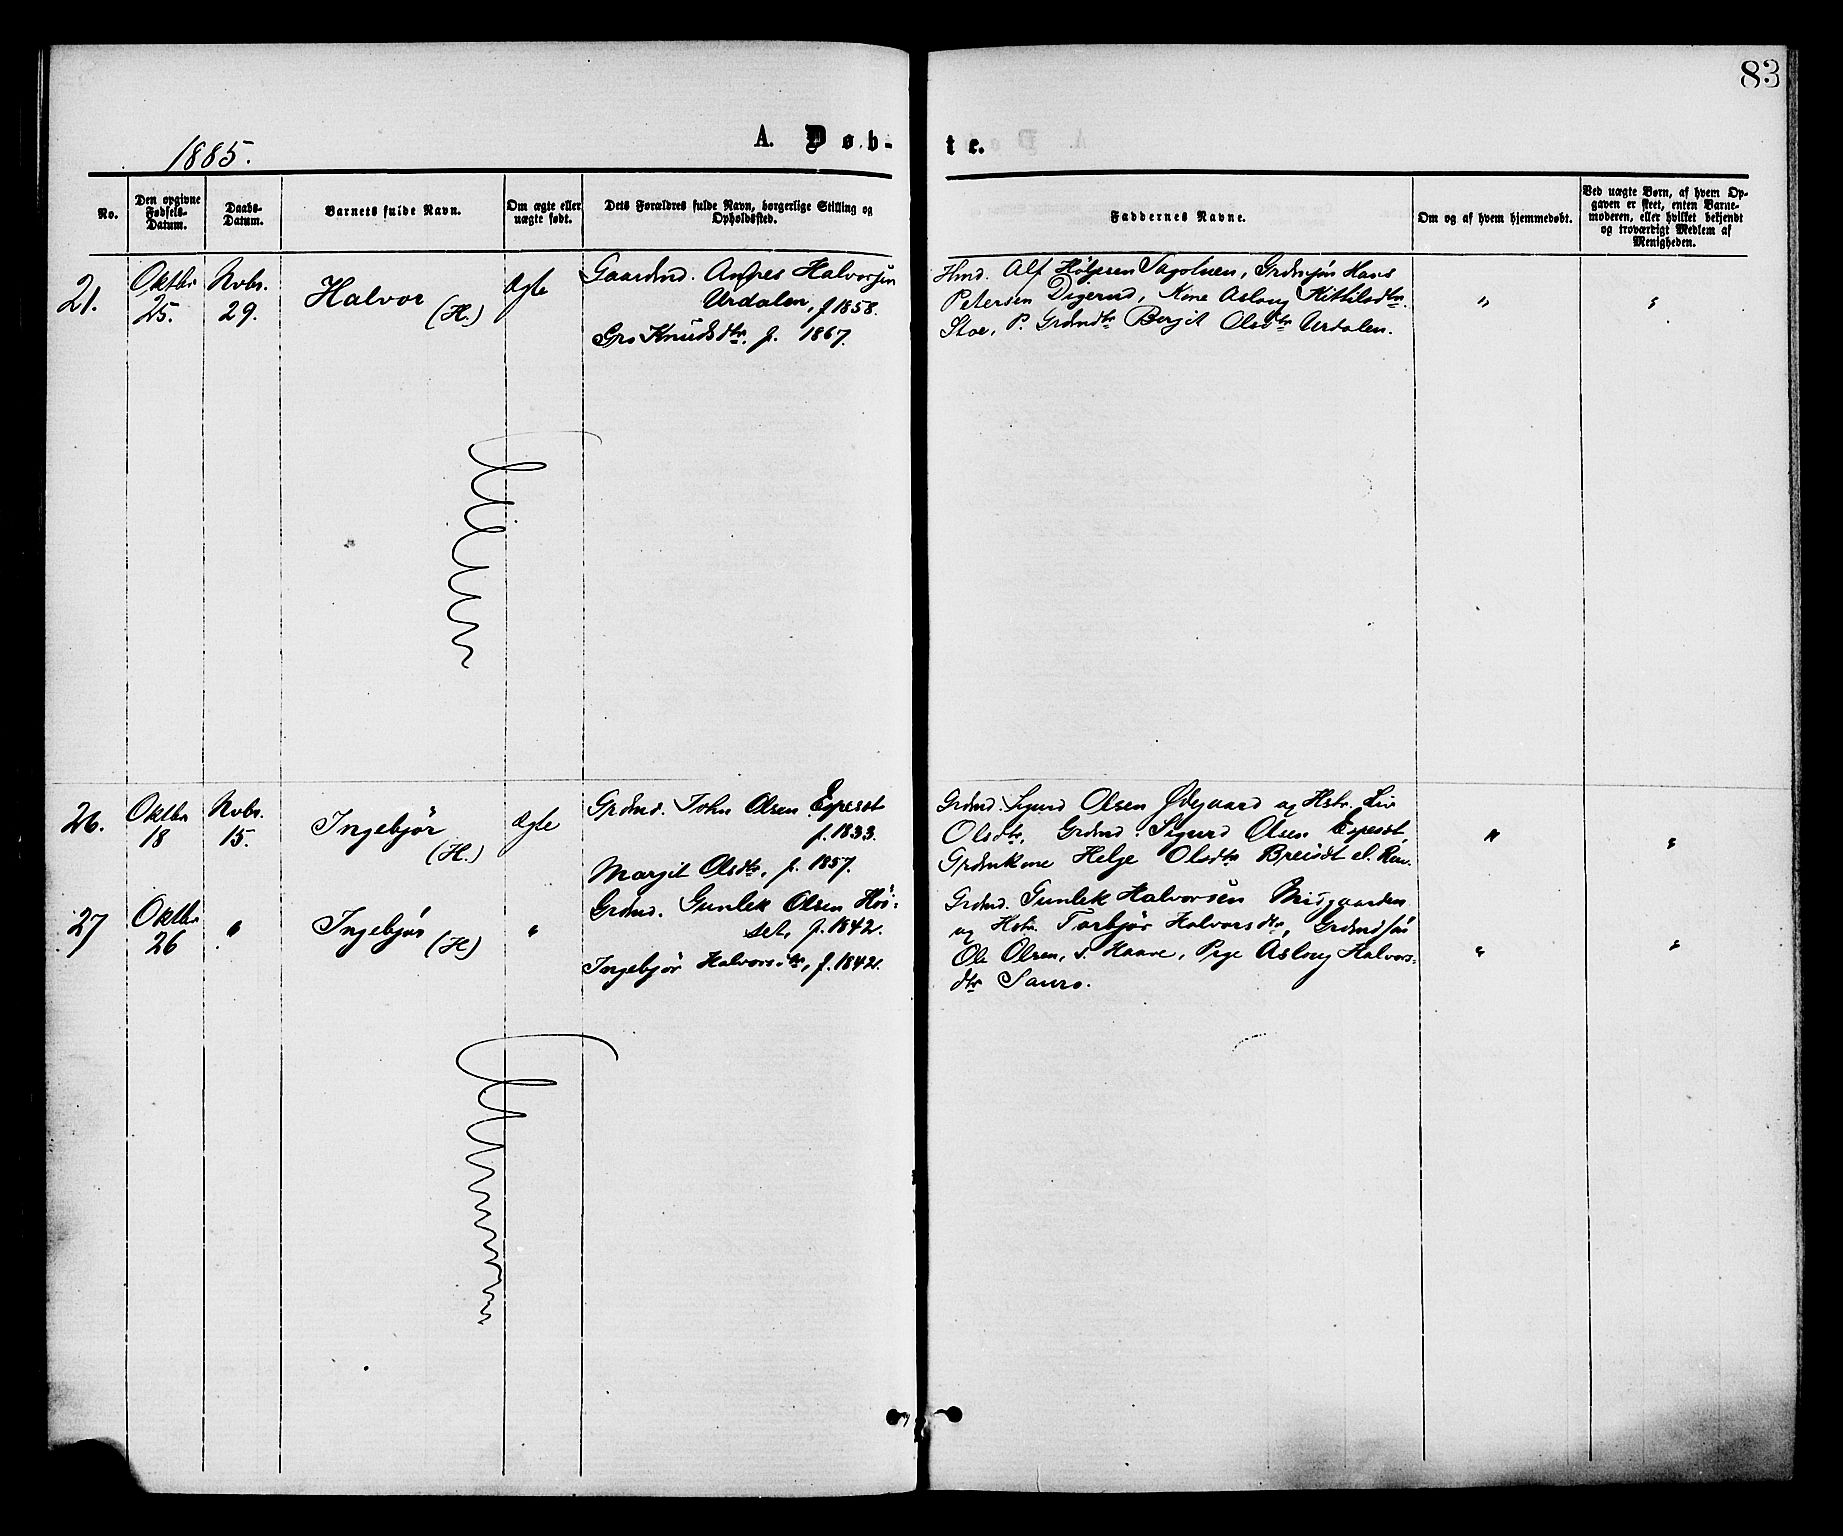 83
1885.
A. Døb-
te.
No.
Den opgivne
Fødsels-
Datum.
Daabs-
Datum.
Barnets fulde Navn.
Om ægte eller
uægte født.
Dets Forældres fulde Navn, borgerlige Stilling og
Opholdssted.
Faddernes Navne.
Om og af hvem hjemmedøbt.
Ved uægte Børn, af hvem Op-
gaven er skeet, enten Barne-
moderen, eller hvilket bekjendt
og troværdigt Medlem af
Menigheden.
21.
Oktbr
25.
Nvbr.
29.
Halvor
(H.)
Ægte
Gaardmd. Halvorsen
Urdalen, f. 1858.
Gro Knudsdtr. f. 1867.
Hmd. Alf Grdmsjøn Hans
Petersen Digerud, Kone Aslaug Kittilsdtr.
Stoe, P. Grdmdtr Bergit Olsdtr Urdalen.
"
"
26.
Oktbr
18
Nvbr.
15.
Ingebjør
(H.)
Ægte
Grdmd. John Olsen
f. 1833.
Margit Olsdtr. f. 1857.
Grdmd. Sigurd Olsen Ødegaard og Hstr. Liv
Olsdtr, Grdmd. Sigurd Olsen
Grdmkone Helge Olsdtr
"
"
27
Oktbr
26
"
Ingebjør
(H.)
"
Grdmd. Gunlek Olsen Høi-
set, f. 1842.
Ingebjør Halvorsdtr, f. 1842.
Grdmd. Gunlek Halvorsen Midgaarden
og Hstr. Torbjør Halvorsdtr, Grdmdsøn
Ole Olsen, s. Haave, Pige Aslaug Halvors-
dtr Sauro.
"
"